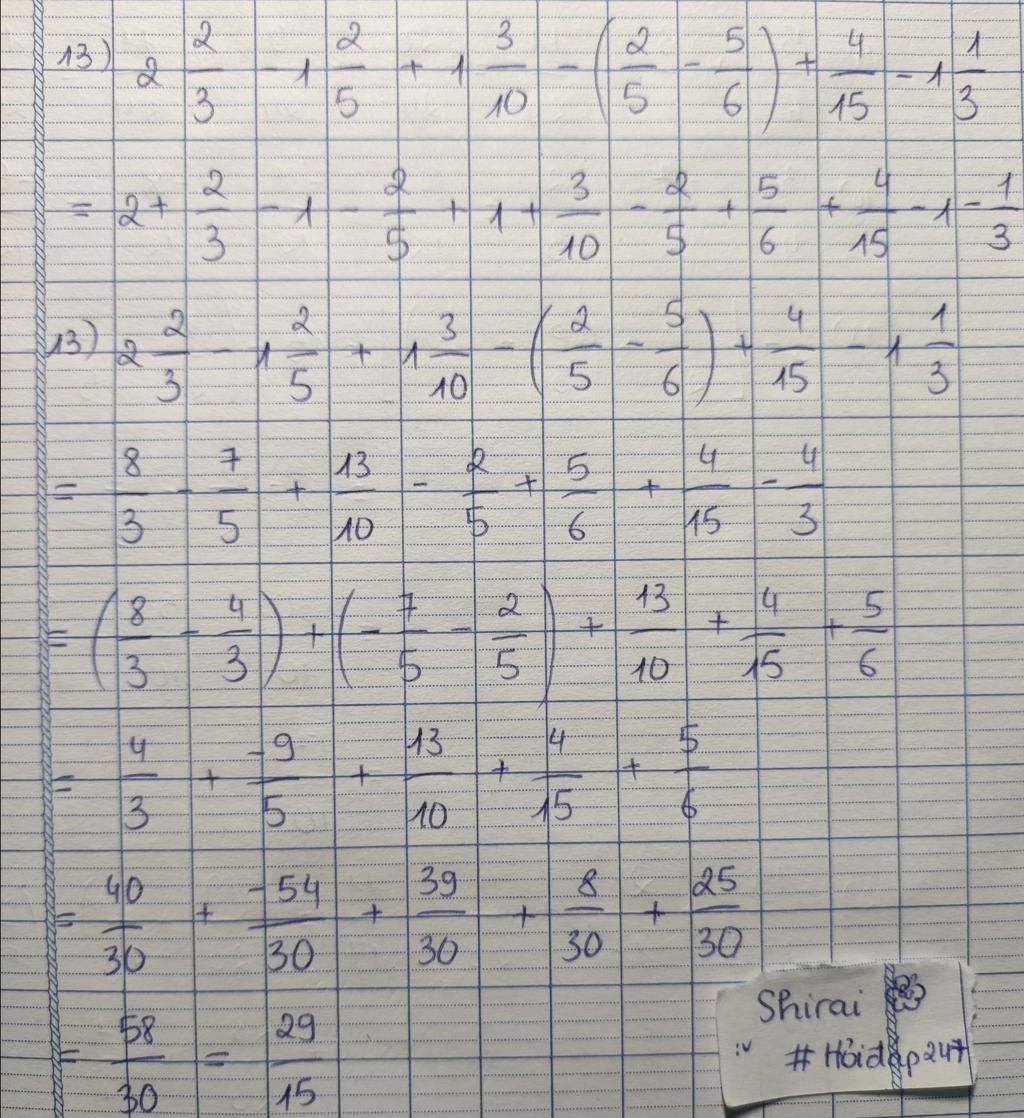 13) 2 2/3 - 1 2/5 + 1 3/10 - (2/5 - 5/6) + 4/15 - 1 1/3
= 2 + 2/3 - 1 - 2/5 + 1 + 3/10 - 2/5 + 5/6 + 4/15 - 1 - 1/3
13) 2 2/3 - 1 2/5 + 1 3/10 - (2/5 - 5/6) + 4/15 - 1 1/3
= 8/3 - 7/5 + 13/10 - 2/5 + 5/6 + 4/15 - 4/3
= (8/3 - 4/3) + (- 7/5 - 2/5) + 13/10 + 4/15 + 5/6
= 4/3 + -9/5 + 13/10 + 4/15 + 5/6
= 40/30 + -54/30 + 39/30 + 8/30 + 25/30
= 58/30 = 29/15
Shirai
:v #Hỏiđáp247